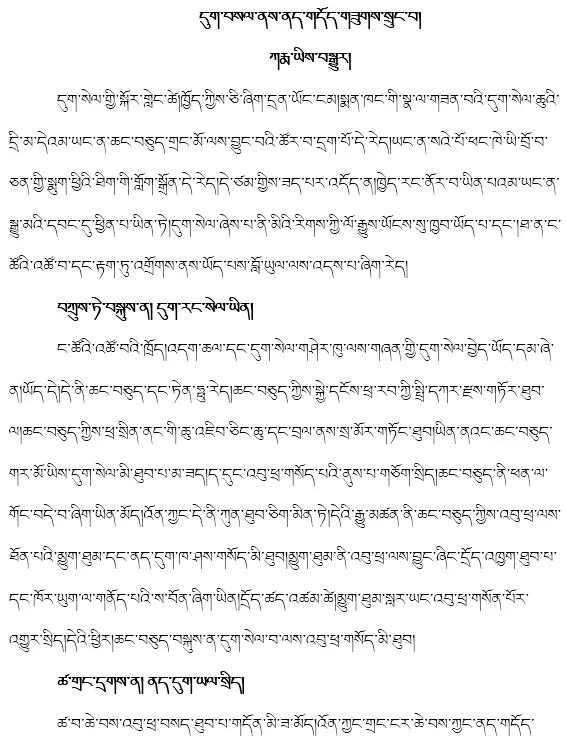 དུག་བསལ་ནས་ནད་གདོད་གཟུགས་སྲུང་བ།
ཀརྨ་ཡིས་བསྒྱུར།
དུག་སེལ་གྱི་སྐོར་གླེང་ཚེ།ཁྱོད་ཀྱིས་ཅི་ཞིག་དྲན་ཡོང་ངམ།སྨན་ཁང་གི་སྣ་ལ་གཟན་བའི་དུག་སེལ་ཆུའི་
དྲི་མ་དེའམ་ཡང་ན་ཆང་བཅུད་གྲང་མོ་ལས་བྱུང་བའི་ཚོར་བ་དྲག་པོ་དེ་རེད།ཡང་ན་སའེ་པོ་ཕང་ཁེ་ཡི་བྲོ་བ་
ཅན་གྱི་སྨུག་ཕྱིའི་ཐིག་གི་ཀློག་སྒྲོན་དེ་རེད།དེ་ཙམ་གྱིས་ཟད་པར་འདོད་ན།ཁྱེད་རང་ནོར་བ་ཡིན་པའམ་ཡང་ན་
སྒྱུ་མའི་དབང་དུ་ཕྱིན་པ་ཡིན་ཏེ།དུག་སེལ་ཞེས་པ་ནི་མིའི་རིགས་ཀྱི་ལོ་རྒྱུས་ཡོངས་སུ་ཁྱབ་ཡོད་པ་དང་།ཐ་ན་ང་
ཚོའི་འཚོ་བ་དང་རྟག་ཏུ་འགྲོགས་ནས་ཡོད་པས་བློ་ཡུལ་ལས་འདས་པ་ཞིག་རེད།
བཀྲུས་ཏེ་བསྐུས་ན། དུག་རང་སེལ་ཡིན།
ང་ཚོའི་འཚོ་བའི་ཁྲོད།འདག་ཆལ་དང་དུག་སེལ་གཤེར་ཁུ་ལས་གཞན་གྱི་དུག་སེལ་བྱེད་ཡོད་དམ་ཞེ་
ན།ཡོད་དེ།དེ་ནི་ཆང་བཅུད་དང་ཏེན་ཧྥུ་རེད།ཆང་བཅུད་ཀྱིས་སྐྱེ་དངོས་ཕྲ་རབ་ཀྱི་སྤྲི་དཀར་རྫས་གཏོར་ཐུབ་
ལ།ཆང་བཅུད་ཀྱིས་ཕྲ་སྲིན་ནང་གི་ཆུ་འཇིབ་ཅིང་ཆུ་དང་བྲལ་ནས་སྲ་མོར་གཏོང་ཐུབ།ཡིན་ནའང་ཆང་བཅུད་
གར་མོ་ཡིས་དུག་སེལ་མི་ཐུབ་པ་མ་ཟད།ད་དུང་འབུ་ཕྲ་གསོད་པའི་ནུས་པ་གཅོག་སྲིད།ཆང་བཅུད་ནི་ཕན་ལ་
གོང་བདེ་བ་ཞིག་ཡིན་མོད།འོན་ཀྱང་དེ་ནི་ཀུན་ཐུབ་ཅིག་མིན་ཏེ།དེའི་རྒྱུ་མཚན་ནི་ཆང་བཅུད་ཀྱིས་འབུ་ཕྲ་ལས་
ཐོན་པའི་མྱུག་ཐུམ་དང་ནད་དུག་ཁ་ཤས་གསོད་མི་ཐུབ།མྱུག་ཐུམ་ནི་འབུ་ཕྲ་ལས་བྱུང་ཞིང་དྲོད་འཁྱག་ཐུབ་པ་
དང་ཁོར་ཡུག་ལ་གནོད་པའི་ས་བོན་ཞིག་ཡིན།དྲོད་ཚད་འཚམ་ཚེ།མྱུག་ཐུམ་སླར་ཡང་འབུ་ཕྲ་གསོན་པོར་
འགྱུར་སྲིད།དེའི་ཕྱིར།ཆང་བཅུད་བསྐུས་ན་དུག་སེལ་བ་ལས་འབུ་ཕྲ་གསོད་མི་ཐུབ།
ཚ་གྲང་དྲགས་ན། ནད་དུག་ཡལ་སྲིད།
ཚ་བ་ཆེ་བས་འབུ་ཕྲ་བསད་ཐུབ་པ་གདོན་མི་ཟ་མོད།འོན་ཀྱང་གྲང་ངར་ཆེ་བས་ཀྱང་ནད་གདོད་